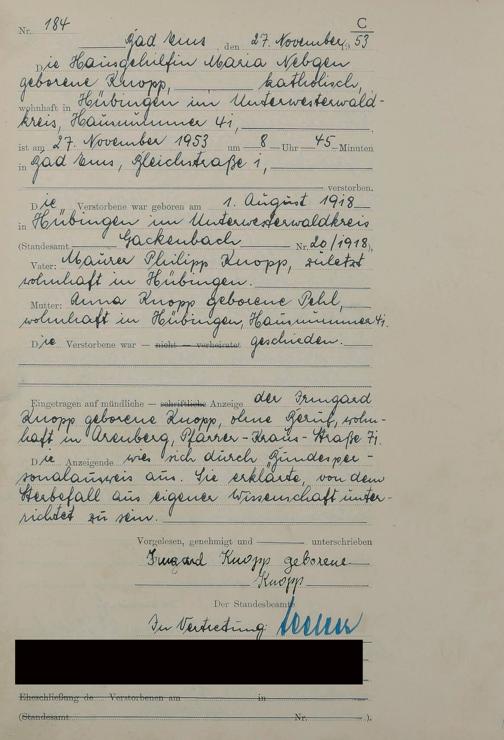 C
Nr. 184
Bad Ems, den 27. November 1953
Die Hausgehilfin Maria Nebgen
geborene Knopp, katholisch,
wohnhaft in Hübingen im Unterwesterwald-
kreis, Hausnummer 41,
ist am 27. November 1953 um 8 Uhr 45 Minuten
in Bad Ems, Bleichstraße 1,
verstorben.
Die Verstorbene war geboren am 1. August 1918
in Hübingen im Unterwesterwaldkreis
(Standesamt Gackenbach Nr. 20/1918).
Vater: Maurer Philipp Knopp, zuletzt
wohnhaft in Hübingen.
Mutter: Anna Knopp geborene Pehl,
wohnhaft in Hübingen, Hausnummer 41.
Die Verstorbene war — nicht — verheiratet geschieden.
Eingetragen auf mündliche — schriftliche Anzeige der Irmgard
Knopp geborene Knopp, ohne Beruf, wohn-
haft in Arenberg, Pfarrer-Kraus-Straße 71.
Die Anzeigende wies sich durch Bundesper-
sonalausweis aus. Sie erklärte, von dem
Sterbefall aus eigener Wissenschaft unter-
richtet zu sein.
Vorgelesen, genehmigt und unterschrieben
Irmgard Knopp geborene
Knopp
Der Standesbeamte
In Vertretung
Eheschließung de Verstorbenen am in
(Standesamt Nr. ).